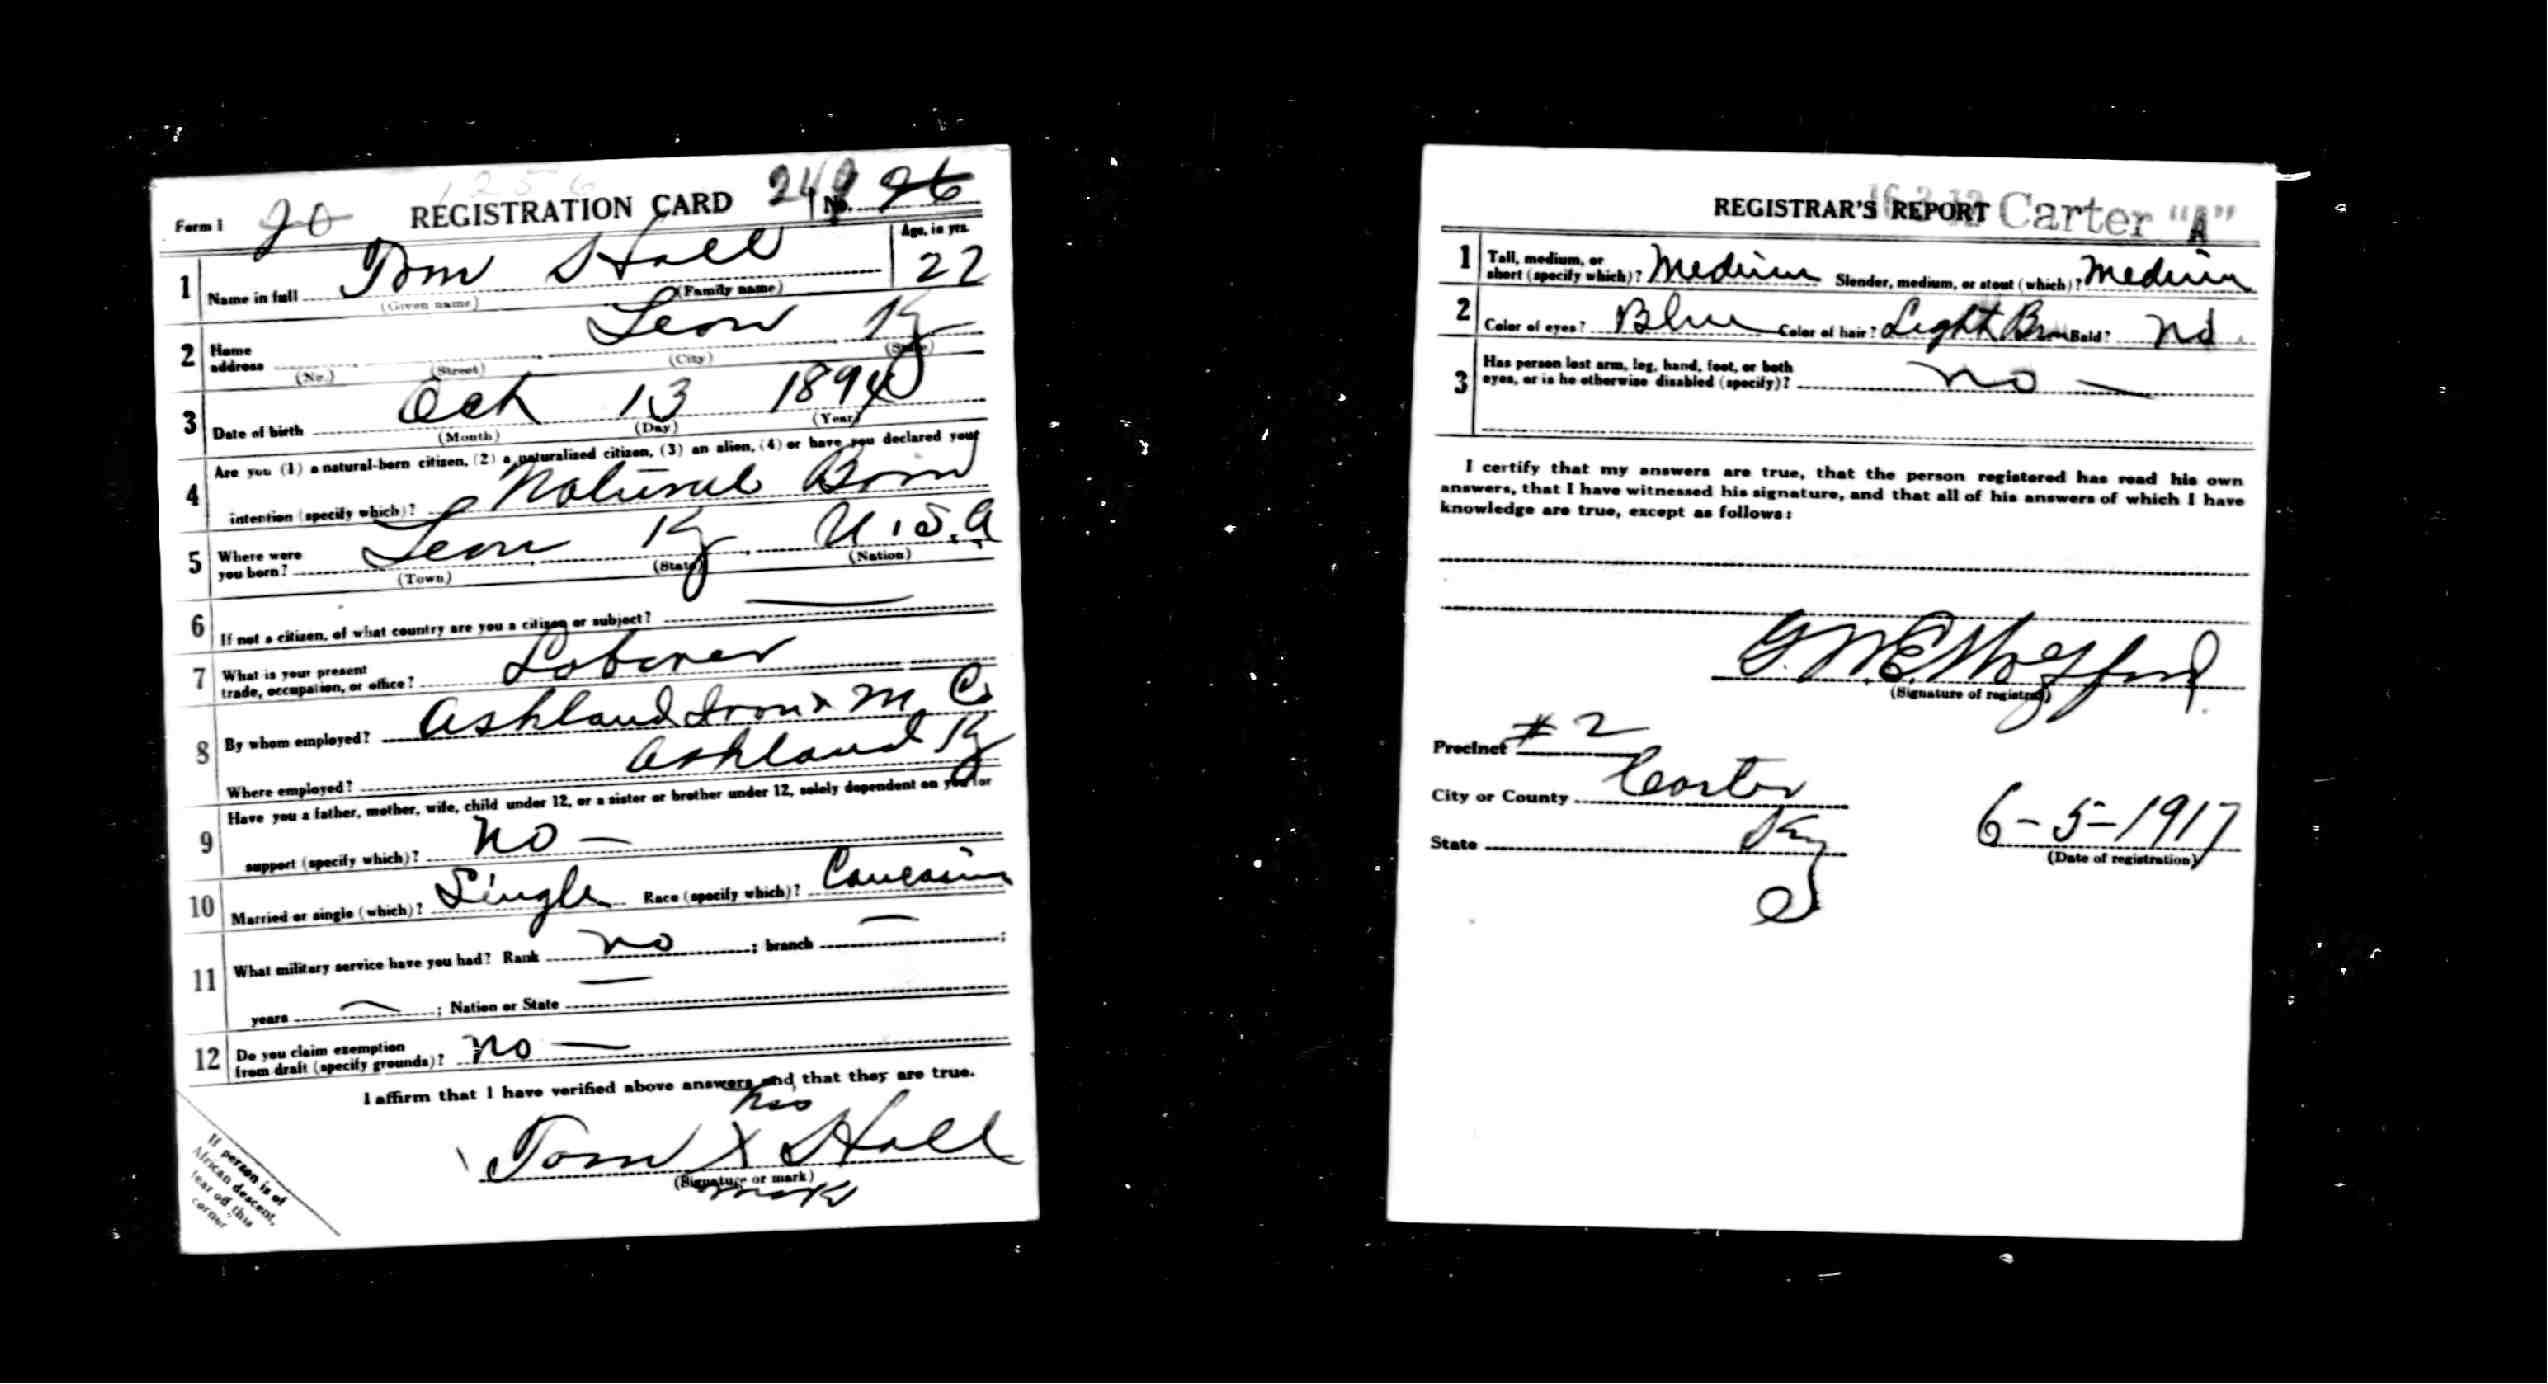 1256
Form 1 20 REGISTRATION CARD 249 No. 26
1 Name in full Tom Hall Age, in yrs. 22
(Given name) (Family name)
2 Home address Leon Ky
(No.) (Street) (City) (State)
3 Date of birth Oct 13 1894
(Month) (Day) (Year)
4 Are you (1) a natural-born citizen, (2) a naturalized citizen, (3) an alien, (4) or have you declared your
intention (specify which)? Natural Born
5 Where were you born? Leon Ky U.S.A
(Town) (State) (Nation)
6 If not a citizen, of what country are you a citizen or subject? —
7 What is your present trade, occupation, or office? Laborer
8 By whom employed? Ashland Iron & M. Co
Where employed? Ashland Ky
9 Have you a father, mother, wife, child under 12, or a sister or brother under 12, solely dependent on you for
support (specify which)? No —
10 Married or single (which)? Single Race (specify which)? Caucasian
11 What military service have you had? Rank no ; branch — ;
years — ; Nation or State —
12 Do you claim exemption from draft (specify grounds)? No —
I affirm that I have verified above answers and that they are true.
his
Tom X Hall
(Signature or mark)
mark
If person is of
African descent,
tear off this
corner
REGISTRAR'S REPORT Carter "A"
1 Tall, medium, or short (specify which)? Medium Slender, medium, or stout (which)? Medium
2 Color of eyes? Blue Color of hair? Light Brn Bald? No.
3 Has person lost arm, leg, hand, foot, or both
eyes, or is he otherwise disabled (specify)? no —
I certify that my answers are true, that the person registered has read his own
answers, that I have witnessed his signature, and that all of his answers of which I have
knowledge are true, except as follows:
(Signature of registrar)
Precinct #2
City or County Carter
State Ky
6-5-1917
(Date of registration)